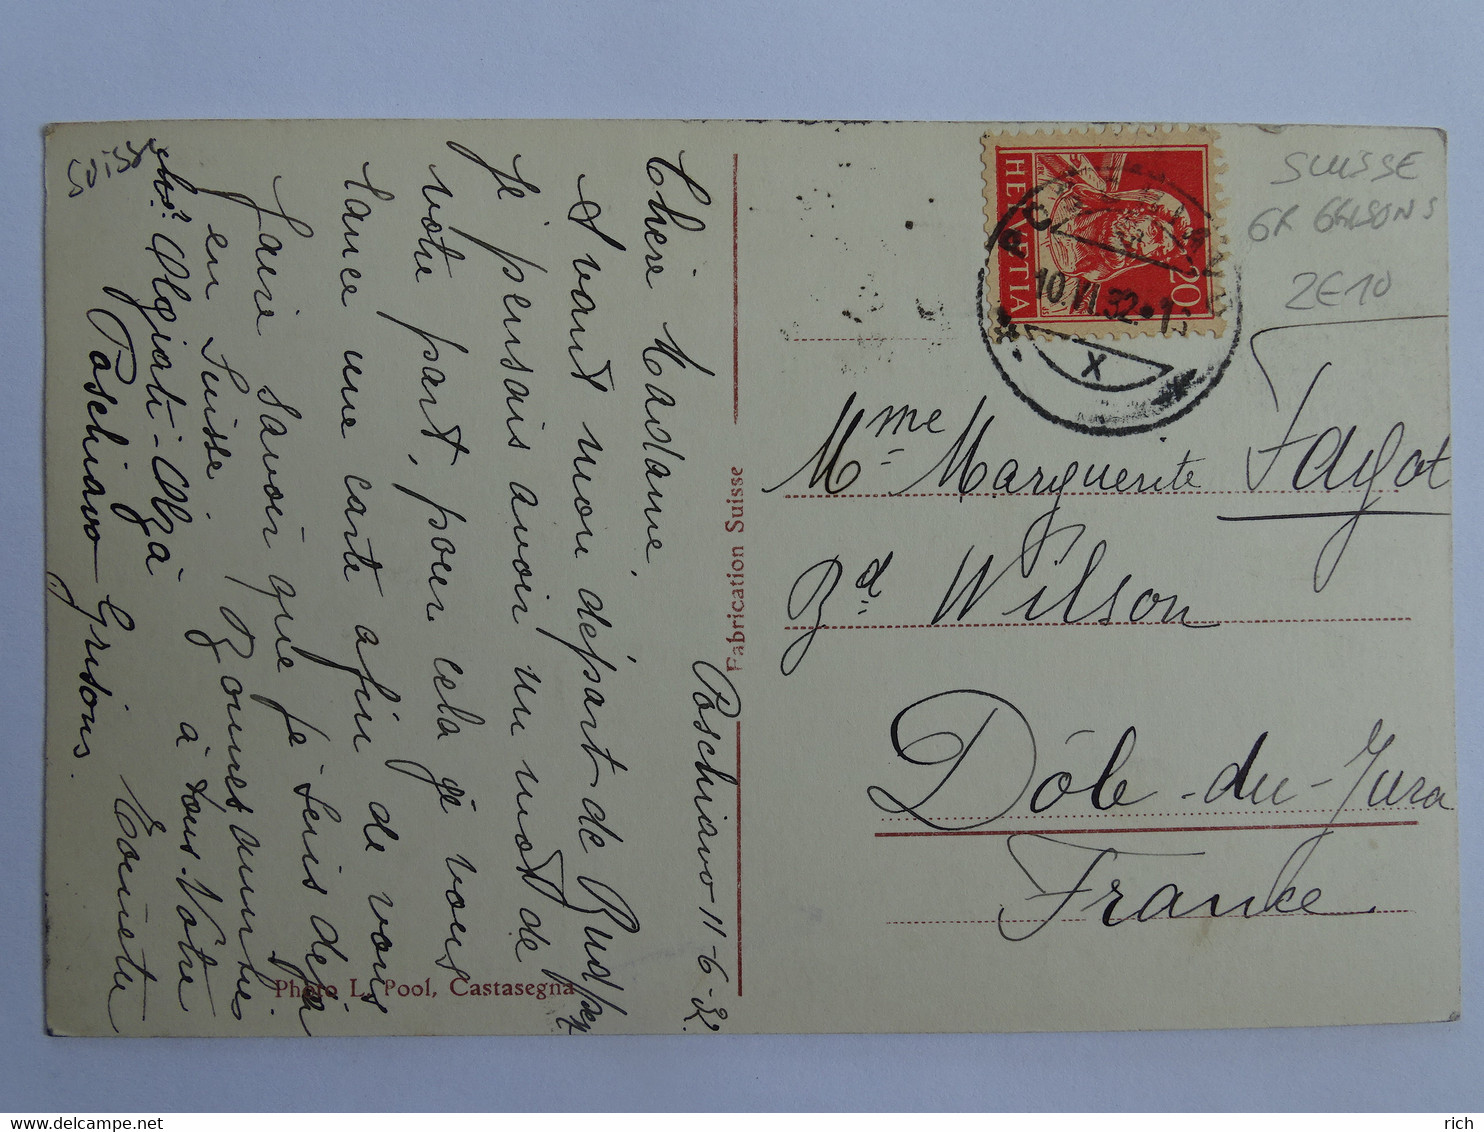 Poschiavo 11-6-32.
Chère Madame,
Avant mon départ de
je pensais avoir un mot de
votre part, pour cela je vous
lance une carte afin de vous
faire savoir que je suis déjà
en Suisse. Bonnes amitiés
à tous. Votre
Olgiati-Olga
Poschiavo Grisons.
Fabrication Suisse
Photo L. Pool, Castasegna
HELVETIA
20
10.VI.32
X
SUISSE
GR GRISONS
2E10
Mme Marguerite Fagot
Bd Wilson
Dôle-du-Jura
France
delcampe.net
rich